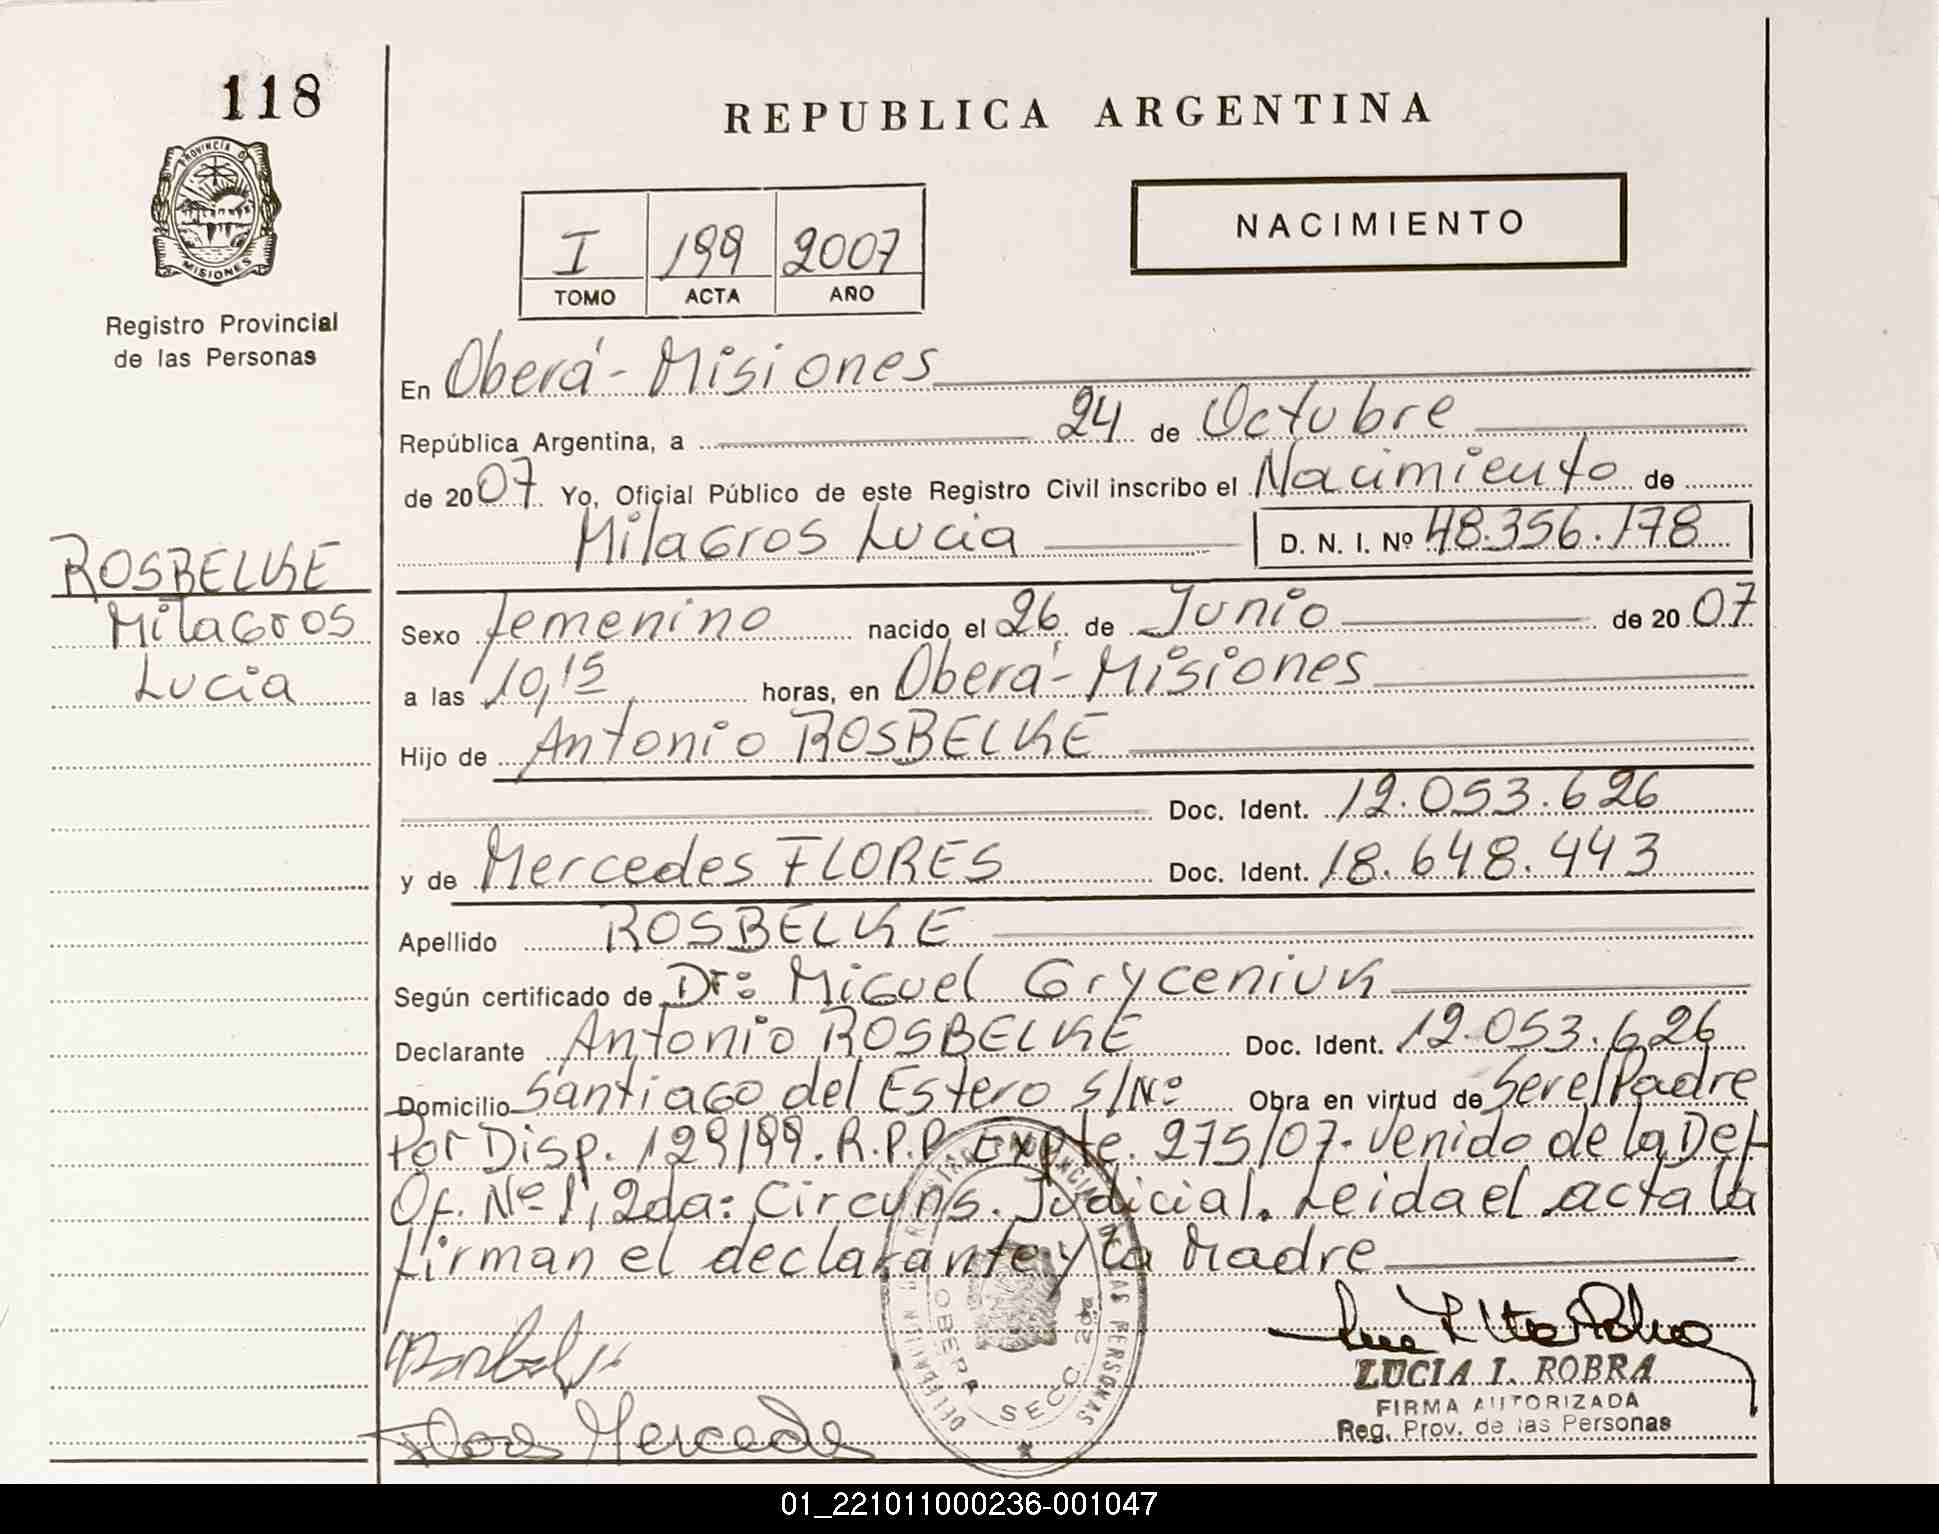 118
PROVINCIA DE
MISIONES
Registro Provincial
de las Personas
REPUBLICA ARGENTINA
NACIMIENTO
I 199 2007
TOMO ACTA AÑO
En Oberá - Misiones
República Argentina, a 24 de Octubre
de 2007 Yo, Oficial Público de este Registro Civil inscribo el Nacimiento de
Milagros Lucia D. N. I. Nº 48.356.178
ROSBELKE
Milagros
Lucia
Sexo femenino nacido el 26 de Junio de 2007
a las 10,15 horas, en Oberá - Misiones
Hijo de Antonio ROSBELKE
Doc. Ident. 12.053.626
y de Mercedes FLORES Doc. Ident. 18.648.443
Apellido ROSBELKE
Según certificado de Dr: Miguel Gryceniuk
Declarante Antonio ROSBELKE Doc. Ident. 12.053.626
Domicilio Santiago del Estero S/Nº Obra en virtud de Ser el Padre
Por Disp. 129/99. R.P.P. Expte. 275/07. venido de la Def.
Of. Nº 1, 2da: Circuns. Judicial. Leida el acta la
firman el declarante y la Madre
REGISTRO PROVINCIAL DE LAS PERSONAS
OBERA SECC. 2da
Flores Mercedes
LUCIA I. ROBRA
FIRMA AUTORIZADA
Reg. Prov. de las Personas
01_221011000236-001047